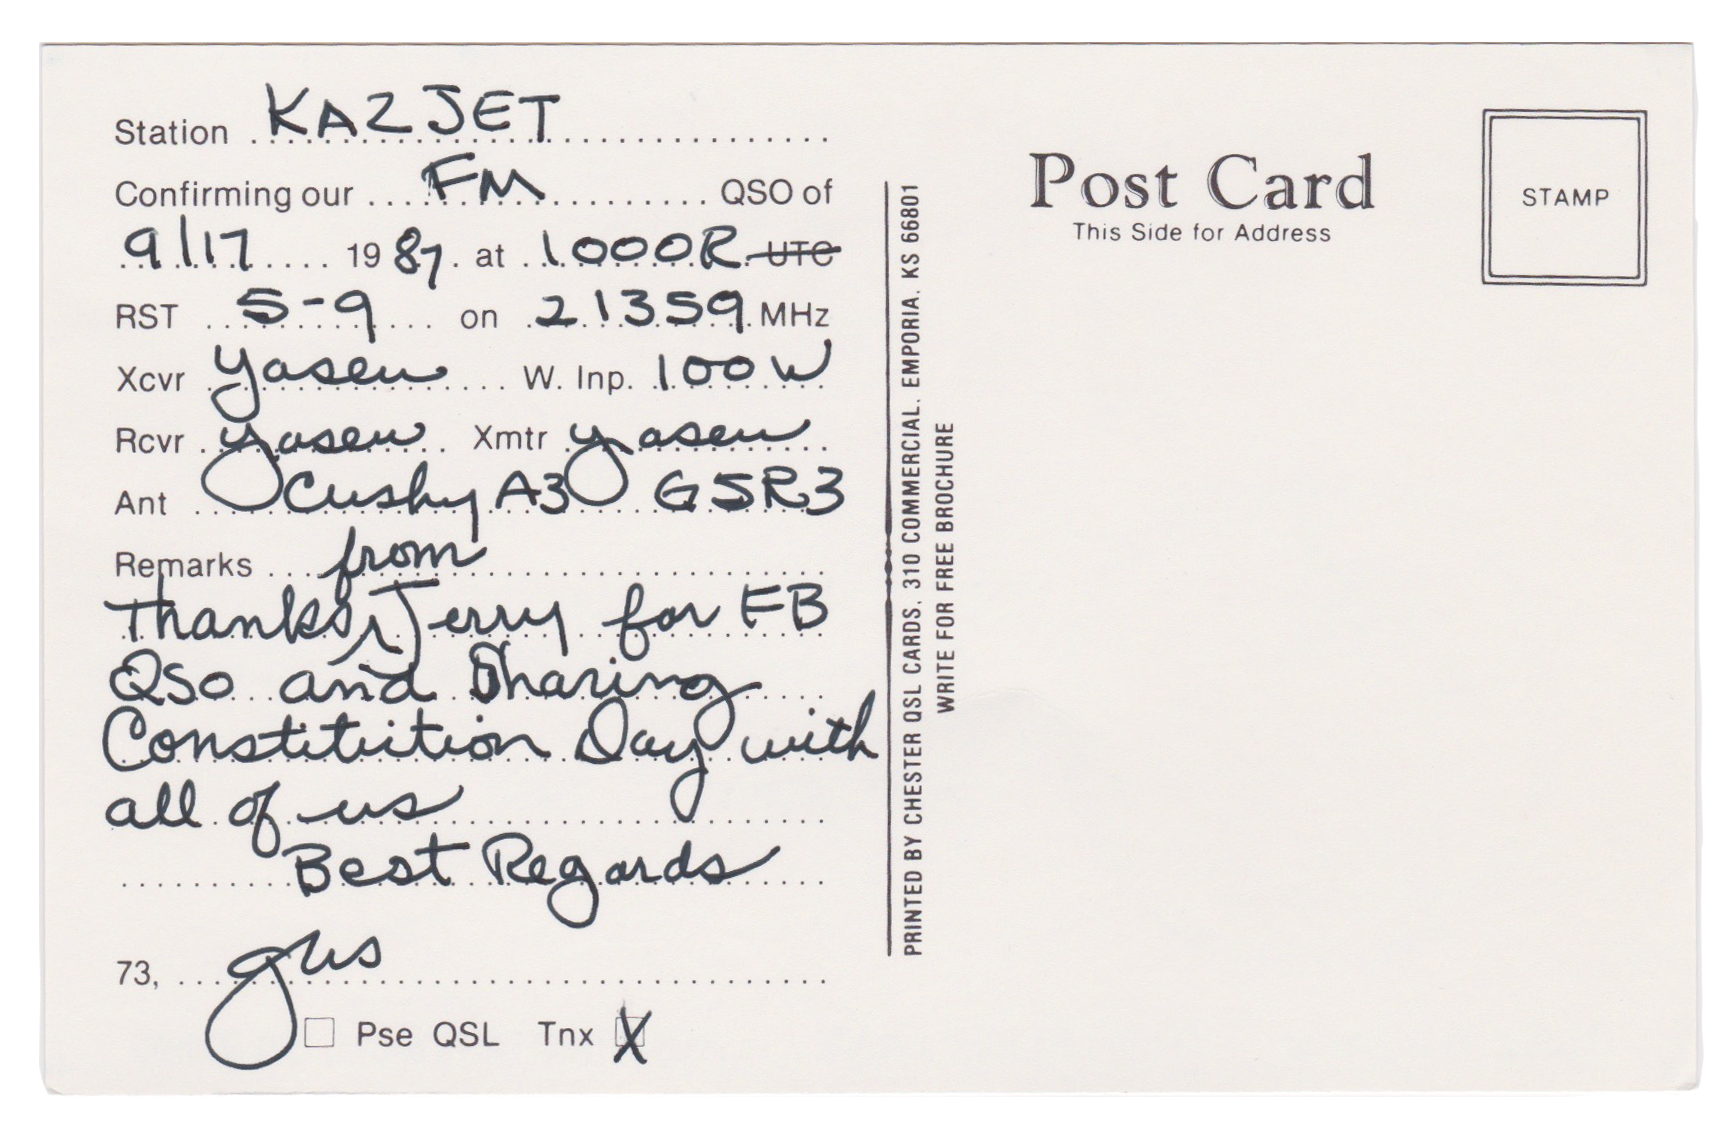 Station KA2JET
Confirming our FM QSO of
9/17 1987 at 1000R UTC
RST 5-9 on 21359 MHz
Xcvr Yasew W. Inp. 100W
Rcvr Yasew Xmtr Yasew
Ant Cushy A3 G5R3
Remarks from
Thanks, Jerry for FB
QSO and Sharing
Constitution Day with
all of us
Best Regards
73, Gus
Pse QSL Tnx X
PRINTED BY CHESTER QSL CARDS, 310 COMMERCIAL, EMPORIA, KS 66801
WRITE FOR FREE BROCHURE
Post Card
This Side for Address
STAMP